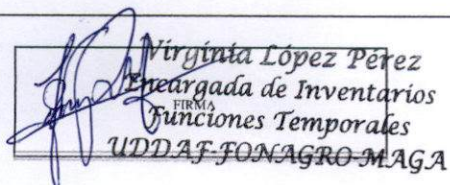 Virginia López Pérez
Encargada de Inventarios
FIRMA
Funciones Temporales
UDDAF-FONAGRO-MAGA